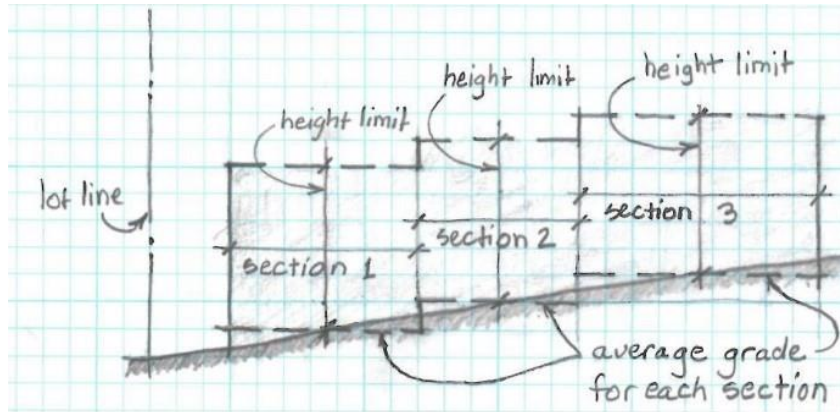 height limit
height limit
height limit
lot line
section 1
section 2
section 3
average grade
for each section